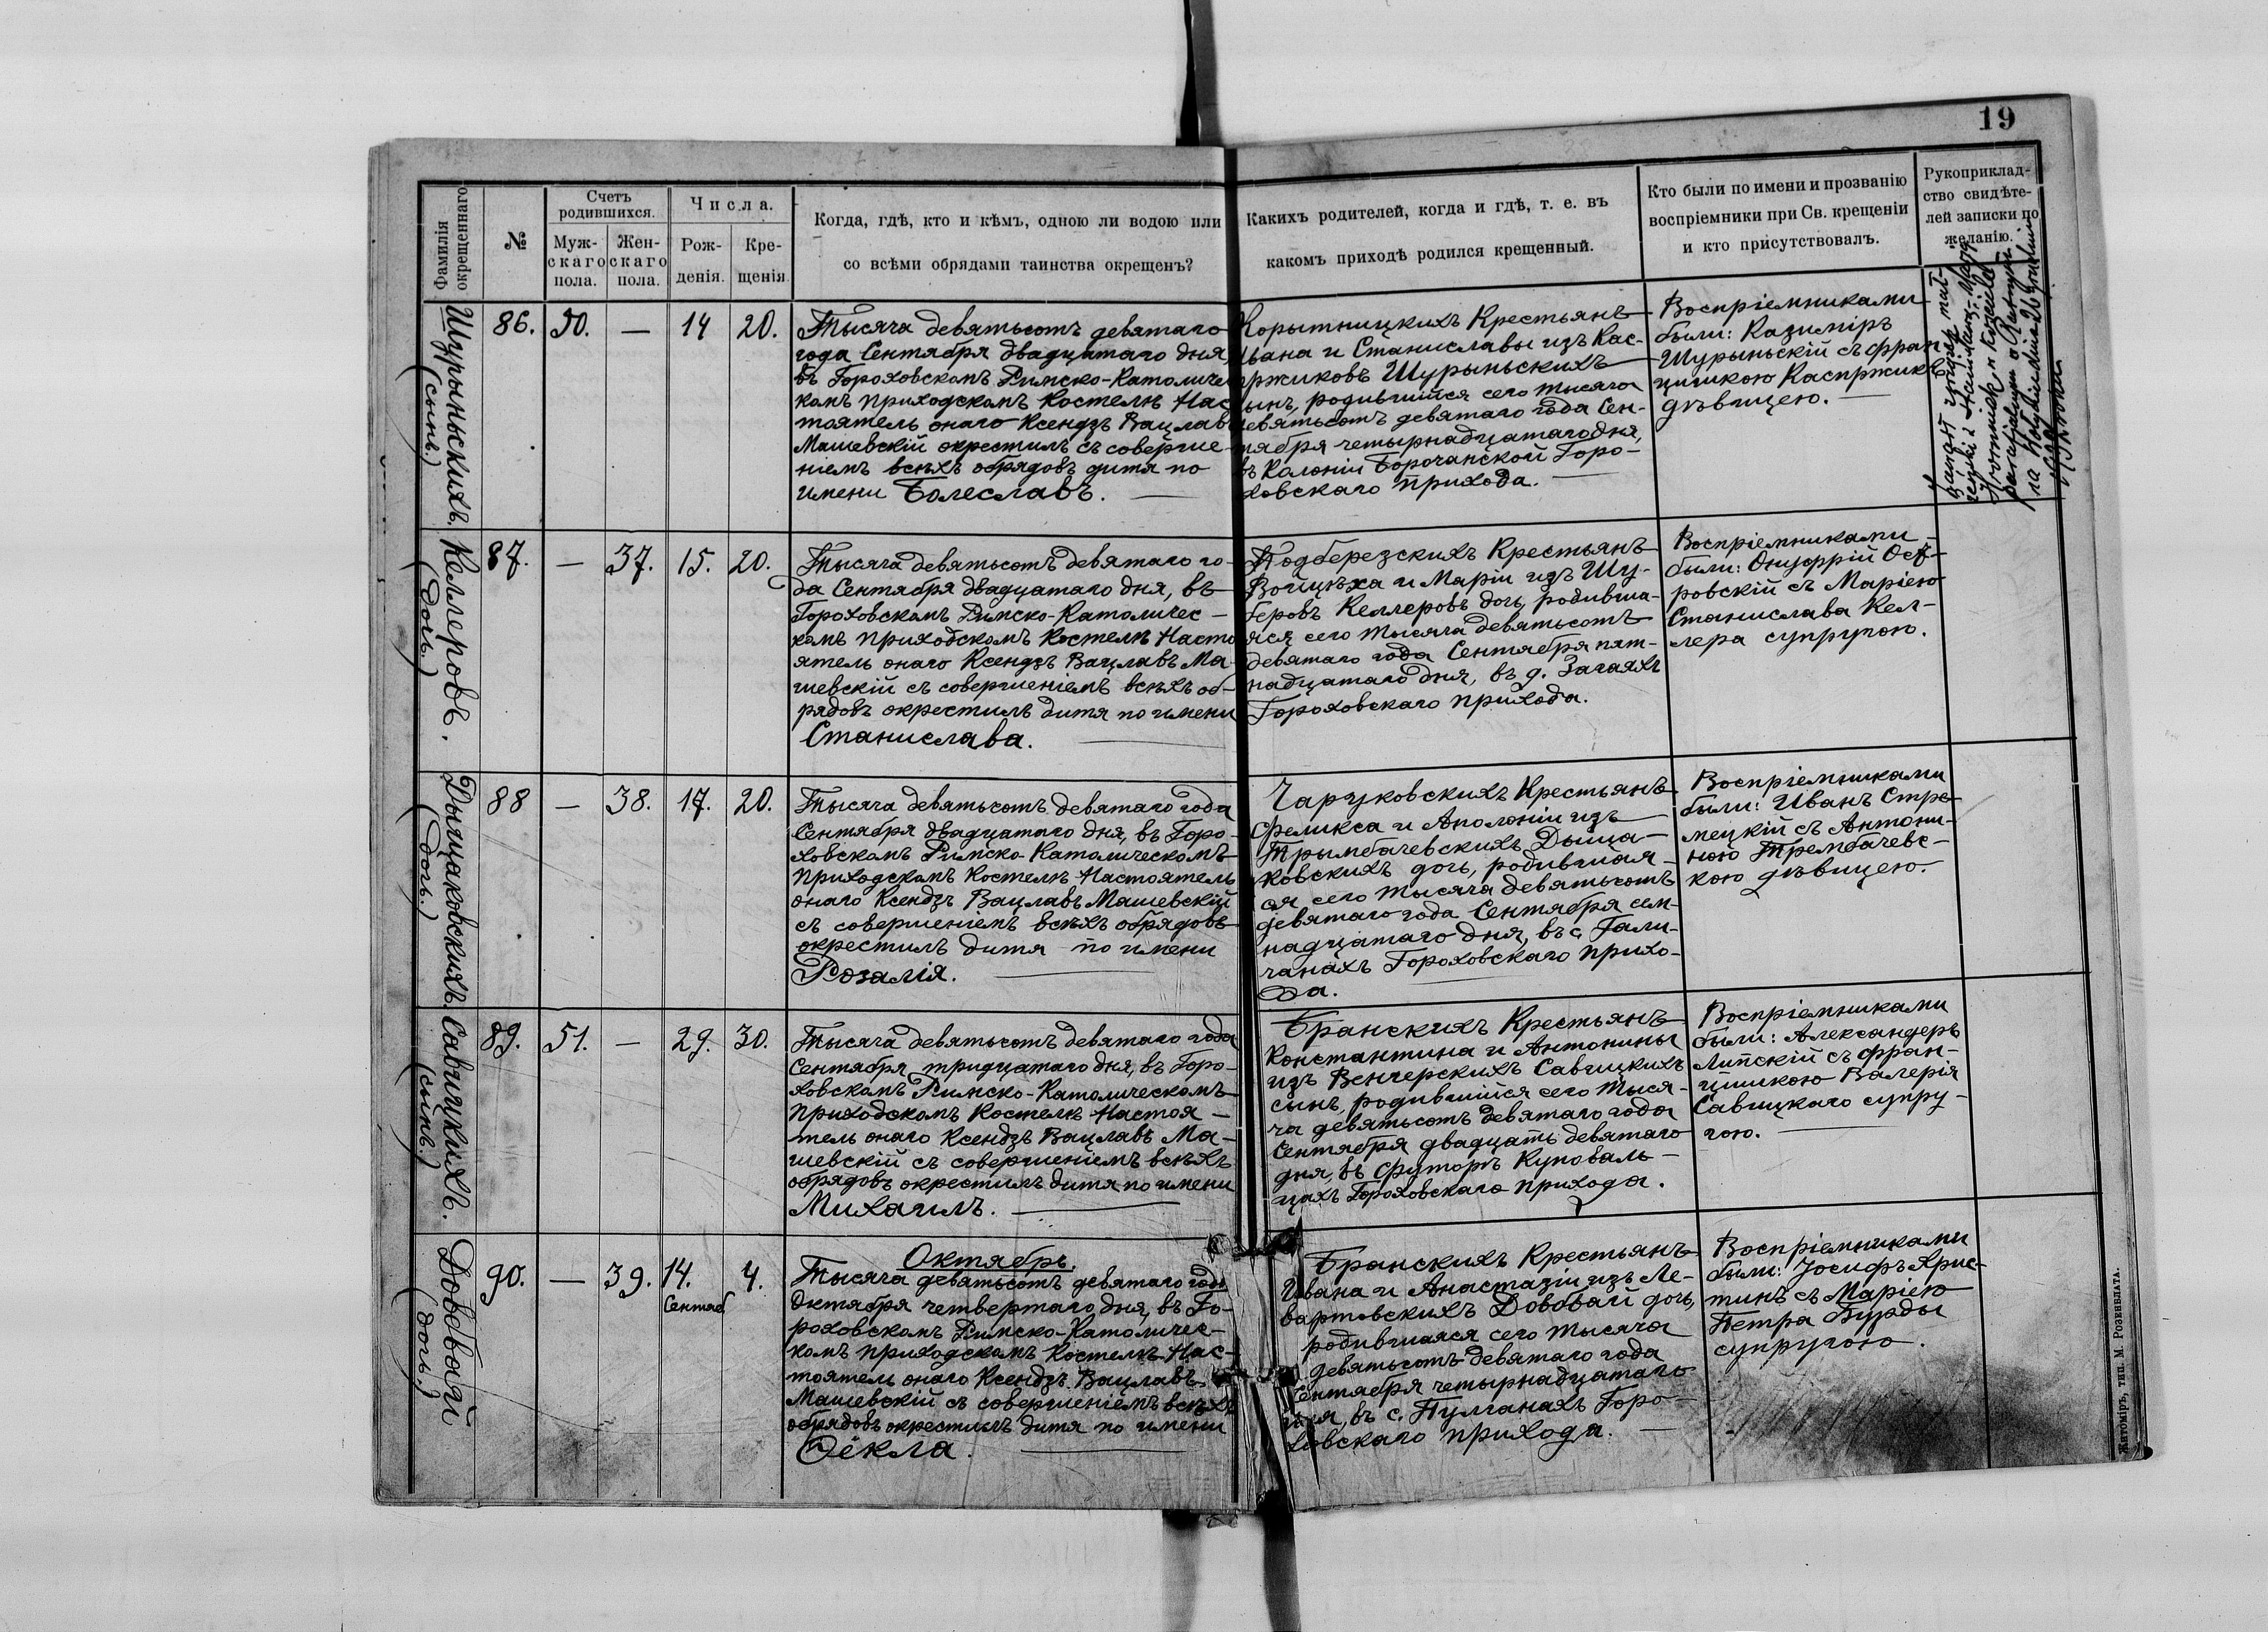 19
Фамилія окрещеннаго
№
Счетъ родившихся.
Муж-
скаго
пола.
Жен-
скаго
пола.
Числа.
Рож-
денія.
Кре-
щенія
Когда, гдѣ, кто и кѣмъ, одною ли водою или
со всѣми обрядами таинства окрещенъ?
Какихъ родителей, когда и гдѣ, т. е. въ
какомъ приходѣ родился крещенный.
Кто были по имени и прозванію
воспріемники при Св. крещеніи
и кто присутствовалъ.
Рукоприклад-
ство свидѣте-
лей записки по
желанію.
Щурыньскихъ.
(сынъ.)
86. 50. — 14 20.
Тысяча девятьсотъ девятаго
года Сентября двадцатаго дня
въ Гороховскомъ Римско-Католичес
комъ приходскомъ костелѣ Нас
тоятель онаго Ксендзъ Вацлавъ
Машевскій окрестилъ съ соверше-
ніемъ всѣхъ обрядовъ дитя по
имени Болеславъ. —
Корытницкихъ Крестьянъ
Ивана и Станиславы изъ Кас-
пржиковъ Щурыньскихъ
сынъ, родившійся сего тысяча
девятьсотъ девятаго года Сен-
тября четырнадцатаго дня,
въ Колоніи Борочанской Горо-
ховскаго прихода. —
Воспріемниками
были: Казиміръ
Щурыньскій съ Фран-
цишкою Каспржикъ
дѣвицею. —
w kościele
parafjalnym
Келлеровъ.
(дочь.)
87. — 37. 15. 20.
Тысяча девятьсотъ девятаго го-
да Сентября двадцатаго дня, въ
Гороховскомъ Римско-Католичес-
комъ приходскомъ костелѣ Насто
ятель онаго Ксендзъ Вацлавъ Ма-
шевскій съ совершеніемъ всѣхъ об-
рядовъ окрестилъ дитя по имени
Станислава. —
Подберезскихъ Крестьянъ
Войцѣха и Маріи изъ Шу-
беровъ Келлеровъ дочь, родивша-
яся сего тысяча девятьсотъ
девятаго года Сентября пят-
надцатаго дня, въ д. Загаяхъ
Гороховскаго прихода.
Воспріемниками
были: Онуфрій Ост-
ровскій съ Маріею
Станислава Кел-
лера супругою.
Дыщаковскихъ.
(дочь.)
88 — 38. 17. 20.
Тысяча девятьсотъ девятаго года
Сентября двадцатаго дня, въ Горо-
ховскомъ Римско-Католическомъ
приходскомъ костелѣ Настоятель
онаго Ксендзъ Вацлавъ Машевскій
съ совершеніемъ всѣхъ обрядовъ
окрестилъ дитя по имени
Розалія. —
Чаруковскихъ Крестьянъ
Феликса и Аполоніи изъ
Трымбачевскихъ Дыща-
ковскихъ дочь, родившая-
ся сего тысяча девятьсотъ
девятаго года Сентября сем-
надцатаго дня, въ с. Гали-
чанахъ Гороховскаго прихо-
да.
Воспріемниками
были: Иванъ Стре-
мецкій съ Антони-
ною Трембачевс-
кою дѣвицею.
Савицкихъ.
(сынъ.)
89. 51. — 29. 30.
Тысяча девятьсотъ девятаго года
Сентября тридцатаго дня, въ Горо-
ховскомъ Римско-Католическомъ
приходскомъ костелѣ Настоя-
тель онаго Ксендзъ Вацлавъ Ма-
шевскій съ совершеніемъ всѣхъ
обрядовъ окрестилъ дитя по имени
Михаилъ. —
Бранскихъ Крестьянъ
Константина и Антонины
изъ Венгерскихъ Савицкихъ
сынъ, родившійся сего тыся-
ча девятьсотъ девятаго года
Сентября двадцать девятаго
дня, въ Футорѣ Куповаль-
цахъ Гороховскаго прихода.
Воспріемниками
были: Александеръ
Липскій съ Фран-
цишкою Валерія
Савицкаго супру-
гою. —
Довбвай
(дочь.)
90. — 39. 14. Сентяб 4.
Октябрь.
Тысяча девятьсотъ девятаго года
Октября четвертаго дня, въ Го-
роховскомъ Римско-Католичес-
комъ приходскомъ костелѣ Нас-
тоятель онаго Ксендзъ Вацлавъ
Машевскій съ совершеніемъ всѣхъ
обрядовъ окрестилъ дитя по имени
Ѳёкла. —
Бранскихъ Крестьянъ
Ивана и Анастазіи изъ Ле-
вартовскихъ Довбвай дочь,
родившаяся сего тысяча
девятьсотъ девятаго года
Сентября четырнадцатаго
дня, въ с. Пулганахъ Горо-
ховскаго прихода. —
Воспріемниками
были: Іосифъ Хрис-
тинъ съ Маріею
Петра Бурды
супругою.
Житоміръ, тип. М. Розенблата.